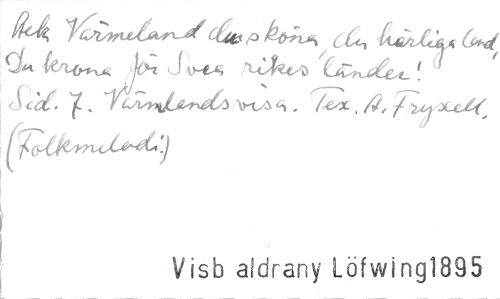 Ack Värmeland du sköna, du härliga land,
Du krona för Svea rikes länder!
Sid. 7. Värmlandsvisa. Tex. A. Fryxell,
(Folkmelodi.)
Visb aldrany Löfwing1895